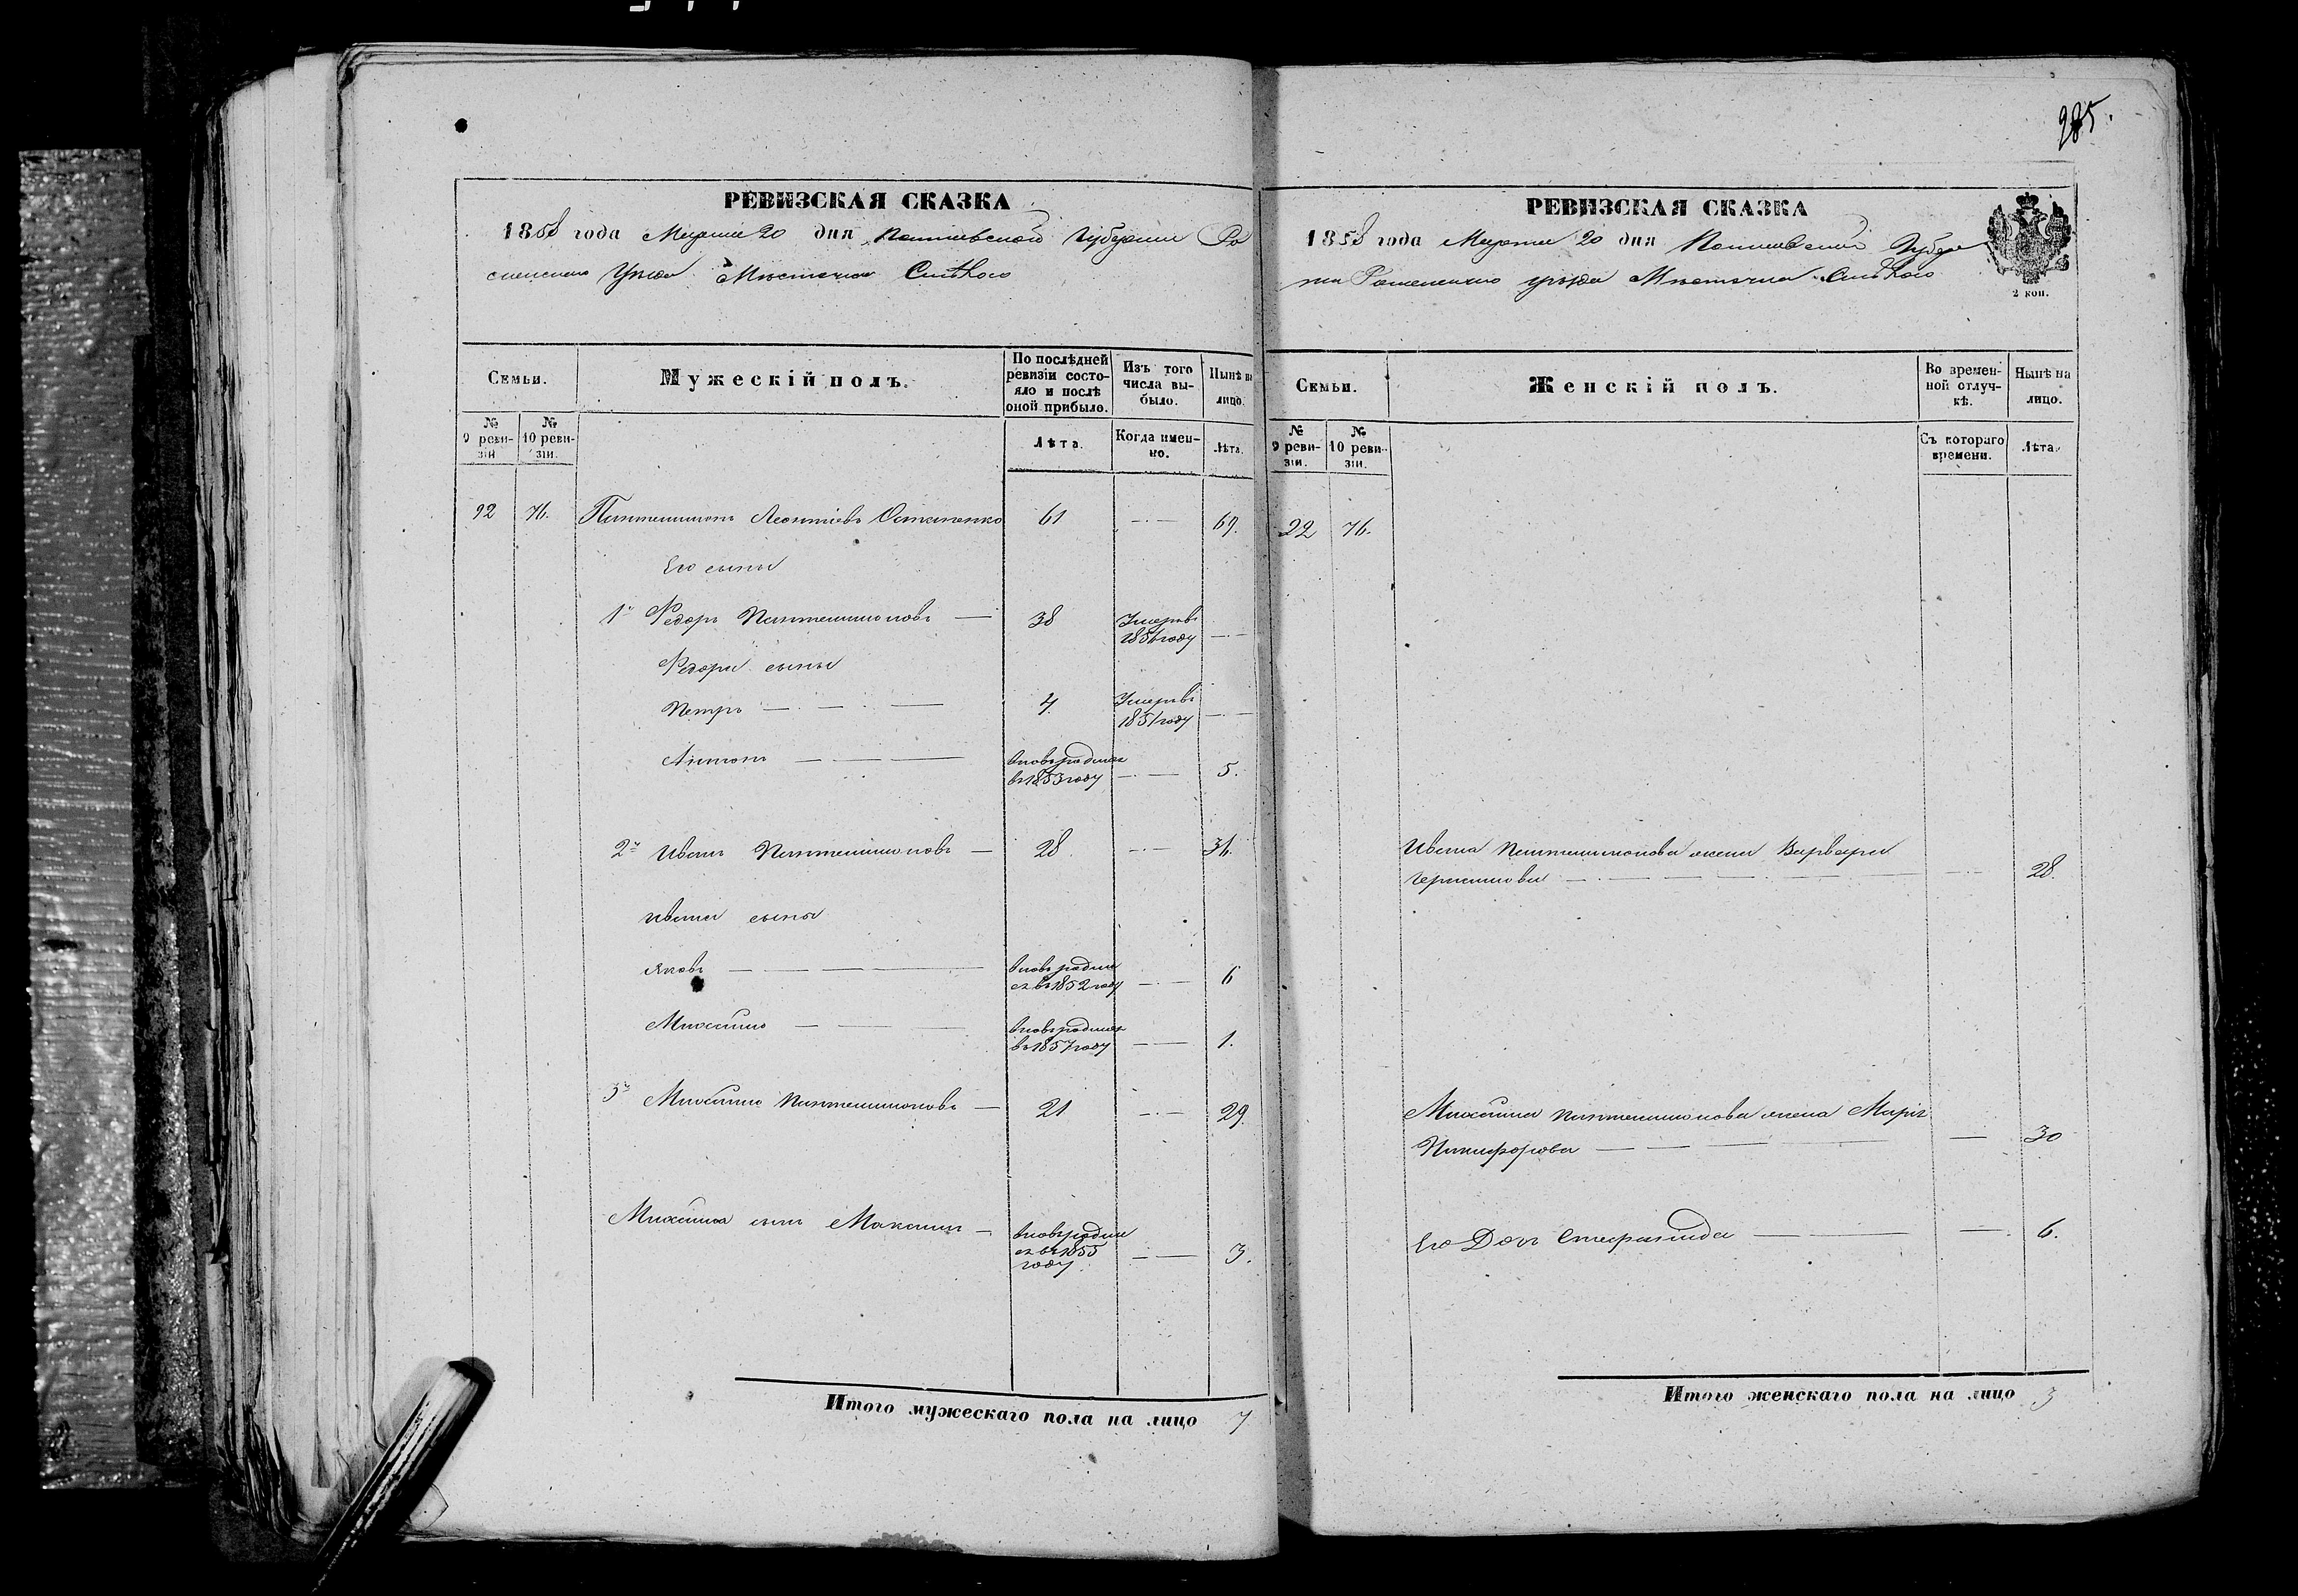 285.
РЕВИЗСКАЯ СКАЗКА
1858 года Марта 20 дня Полтавской Губернии Ро
менскаго Уѣзда Мѣстечка
Семьи.
Мужескій полъ.
По послѣдней ревизіи состояло и послѣ оной прибыло.
Изъ того числа выбыло.
Нынѣ на лицо.
№ 9 ревизіи
№ 10 ревизіи.
Лѣта.
Когда именно.
Лѣта.
92 76. Пантелимонъ Леонтіевъ Остапенко 61 — 69.
Его сыны
1й Федоръ Пантелимоновъ — 38 Умеръ въ
1856 году —
Федора сыны
Петръ — 4 Умеръ въ
1851 году —
Антонъ — вновь родился
въ 1853 году — 5.
2й Иванъ Пантелимоновъ — 28 — 36.
Ивана сыны
Яковъ — вновь родил
ся въ 1852 году — 6
Михайло — вновь родился
въ 1857 году — 1.
3й Михайло Пантелимоновъ — 21 — 29
Михайла сынъ Максимъ — вновь родил
ся въ 1855
году — 3.
Итого мужескаго пола на лицо 7
РЕВИЗСКАЯ СКАЗКА
1858 года Марта 20 дня Полтавской Губер
ніи Роменскаго уѣзда Мѣстечка
2 коп.
Семьи.
Женскій полъ.
Во временной отлучкѣ.
Нынѣ на лицо.
№ 9 ревизіи.
№ 10 ревизіи.
Съ котораго времени.
Лѣта.
22 76.
Ивана Пантелимонова жена Варвара
Герасимова — 28.
Михайла Пантелимонова жена Марія
Никифорова — 30
Его Дочь — 6.
Итого женскаго пола на лицо 3